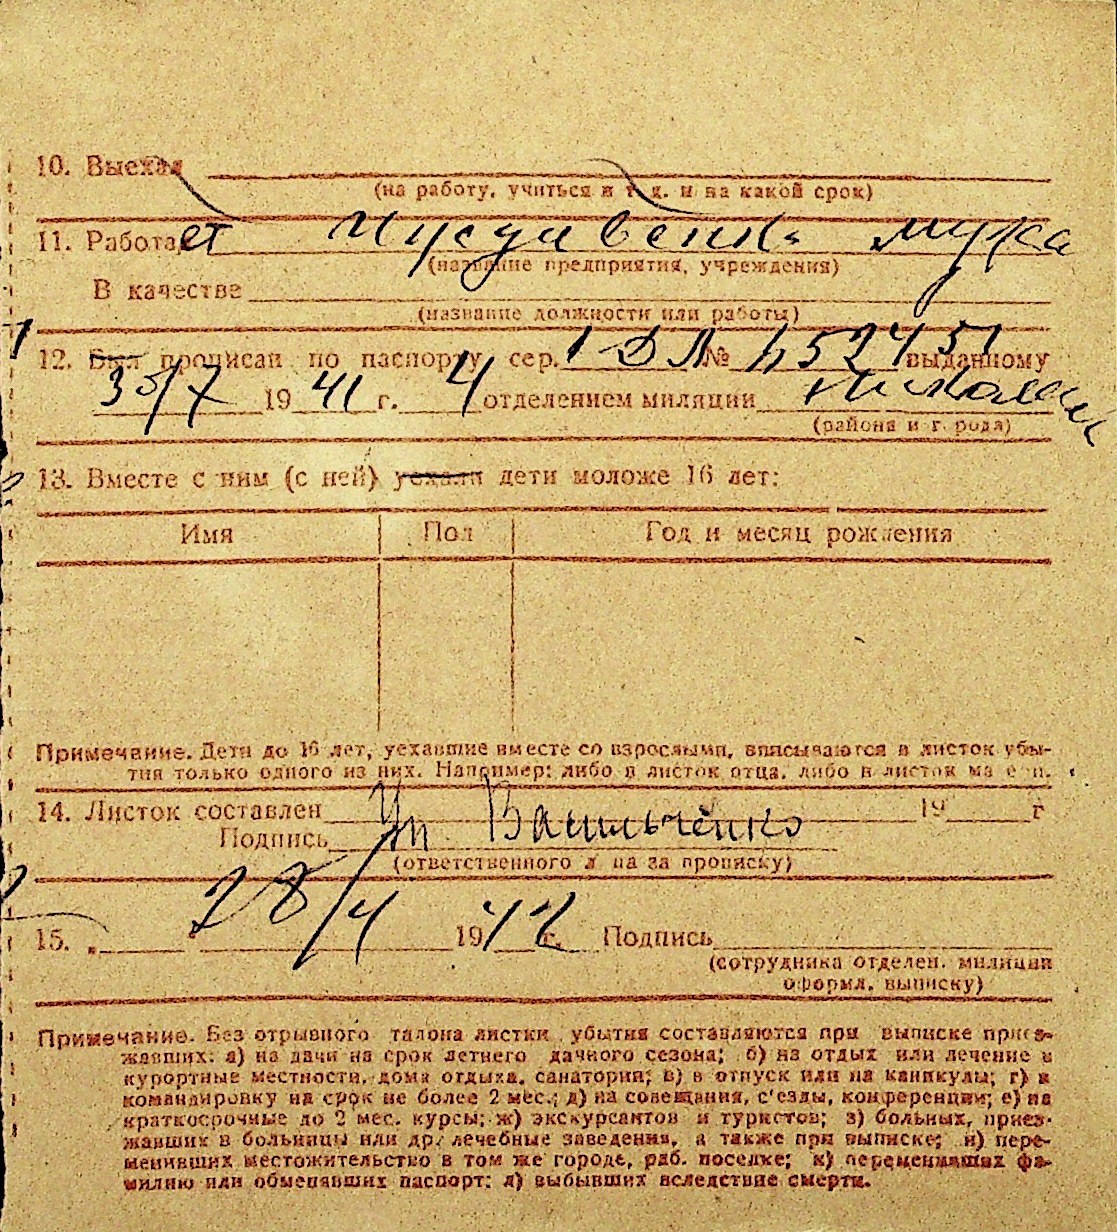 10. Выехал
(на работу, учиться и т. д. и на какой срок)
11. Работает Иждивенка мужа
(название предприятия, учреждения)
В качестве
(название должности или работы)
12. Был прописан по паспорту сер. 1-ДЛ № 452451 выданному
30/7 1941 г. 4 отделением милиции
(района и города)
13. Вместе с ним (с ней) уехали дети моложе 16 лет:
Имя Пол Год и месяц рождения
Примечание. Дети до 16 лет, уехавшие вместе со взрослыми, вписываются в листок убы-
тия только одного из них. Например: либо в листок отца, либо в листок матери.
14. Листок составлен 19 г
Подпись Уп Васильченко
(ответственного лица за прописку)
28/4
15. 1942 г. Подпись
(сотрудника отделен. милиции
оформл. выписку)
Примечание. Без отрывного талона листки убытия составляются при выписке приез-
жавших: а) на дачи на срок летнего дачного сезона; б) на отдых или лечение в
курортные местности, дома отдыха, санатории; в) в отпуск или на каникулы; г) в
командировку на срок не более 2 мес.; д) на совещания, с'езды, конференции; е) на
краткосрочные до 2 мес. курсы; ж) экскурсантов и туристов; з) больных, приез-
жавших в больницы или др. лечебные заведения, а также при выписке; и) пере-
менивших местожительство в том же городе, раб. поселке; к) переменивших фа-
милию или обменявших паспорт; л) выбывших вследствие смерти.